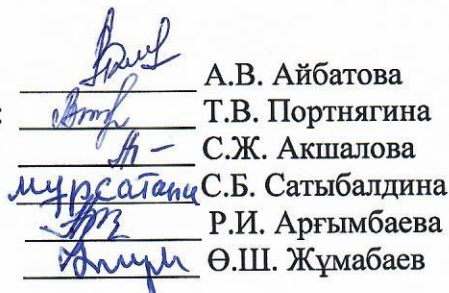 А.В. Айбатова
: Т.В. Портнягина
С.Ж. Акшалова
С.Б. Сатыбалдина
Р.И. Арғымбаева
Ө.Ш. Жұмабаев